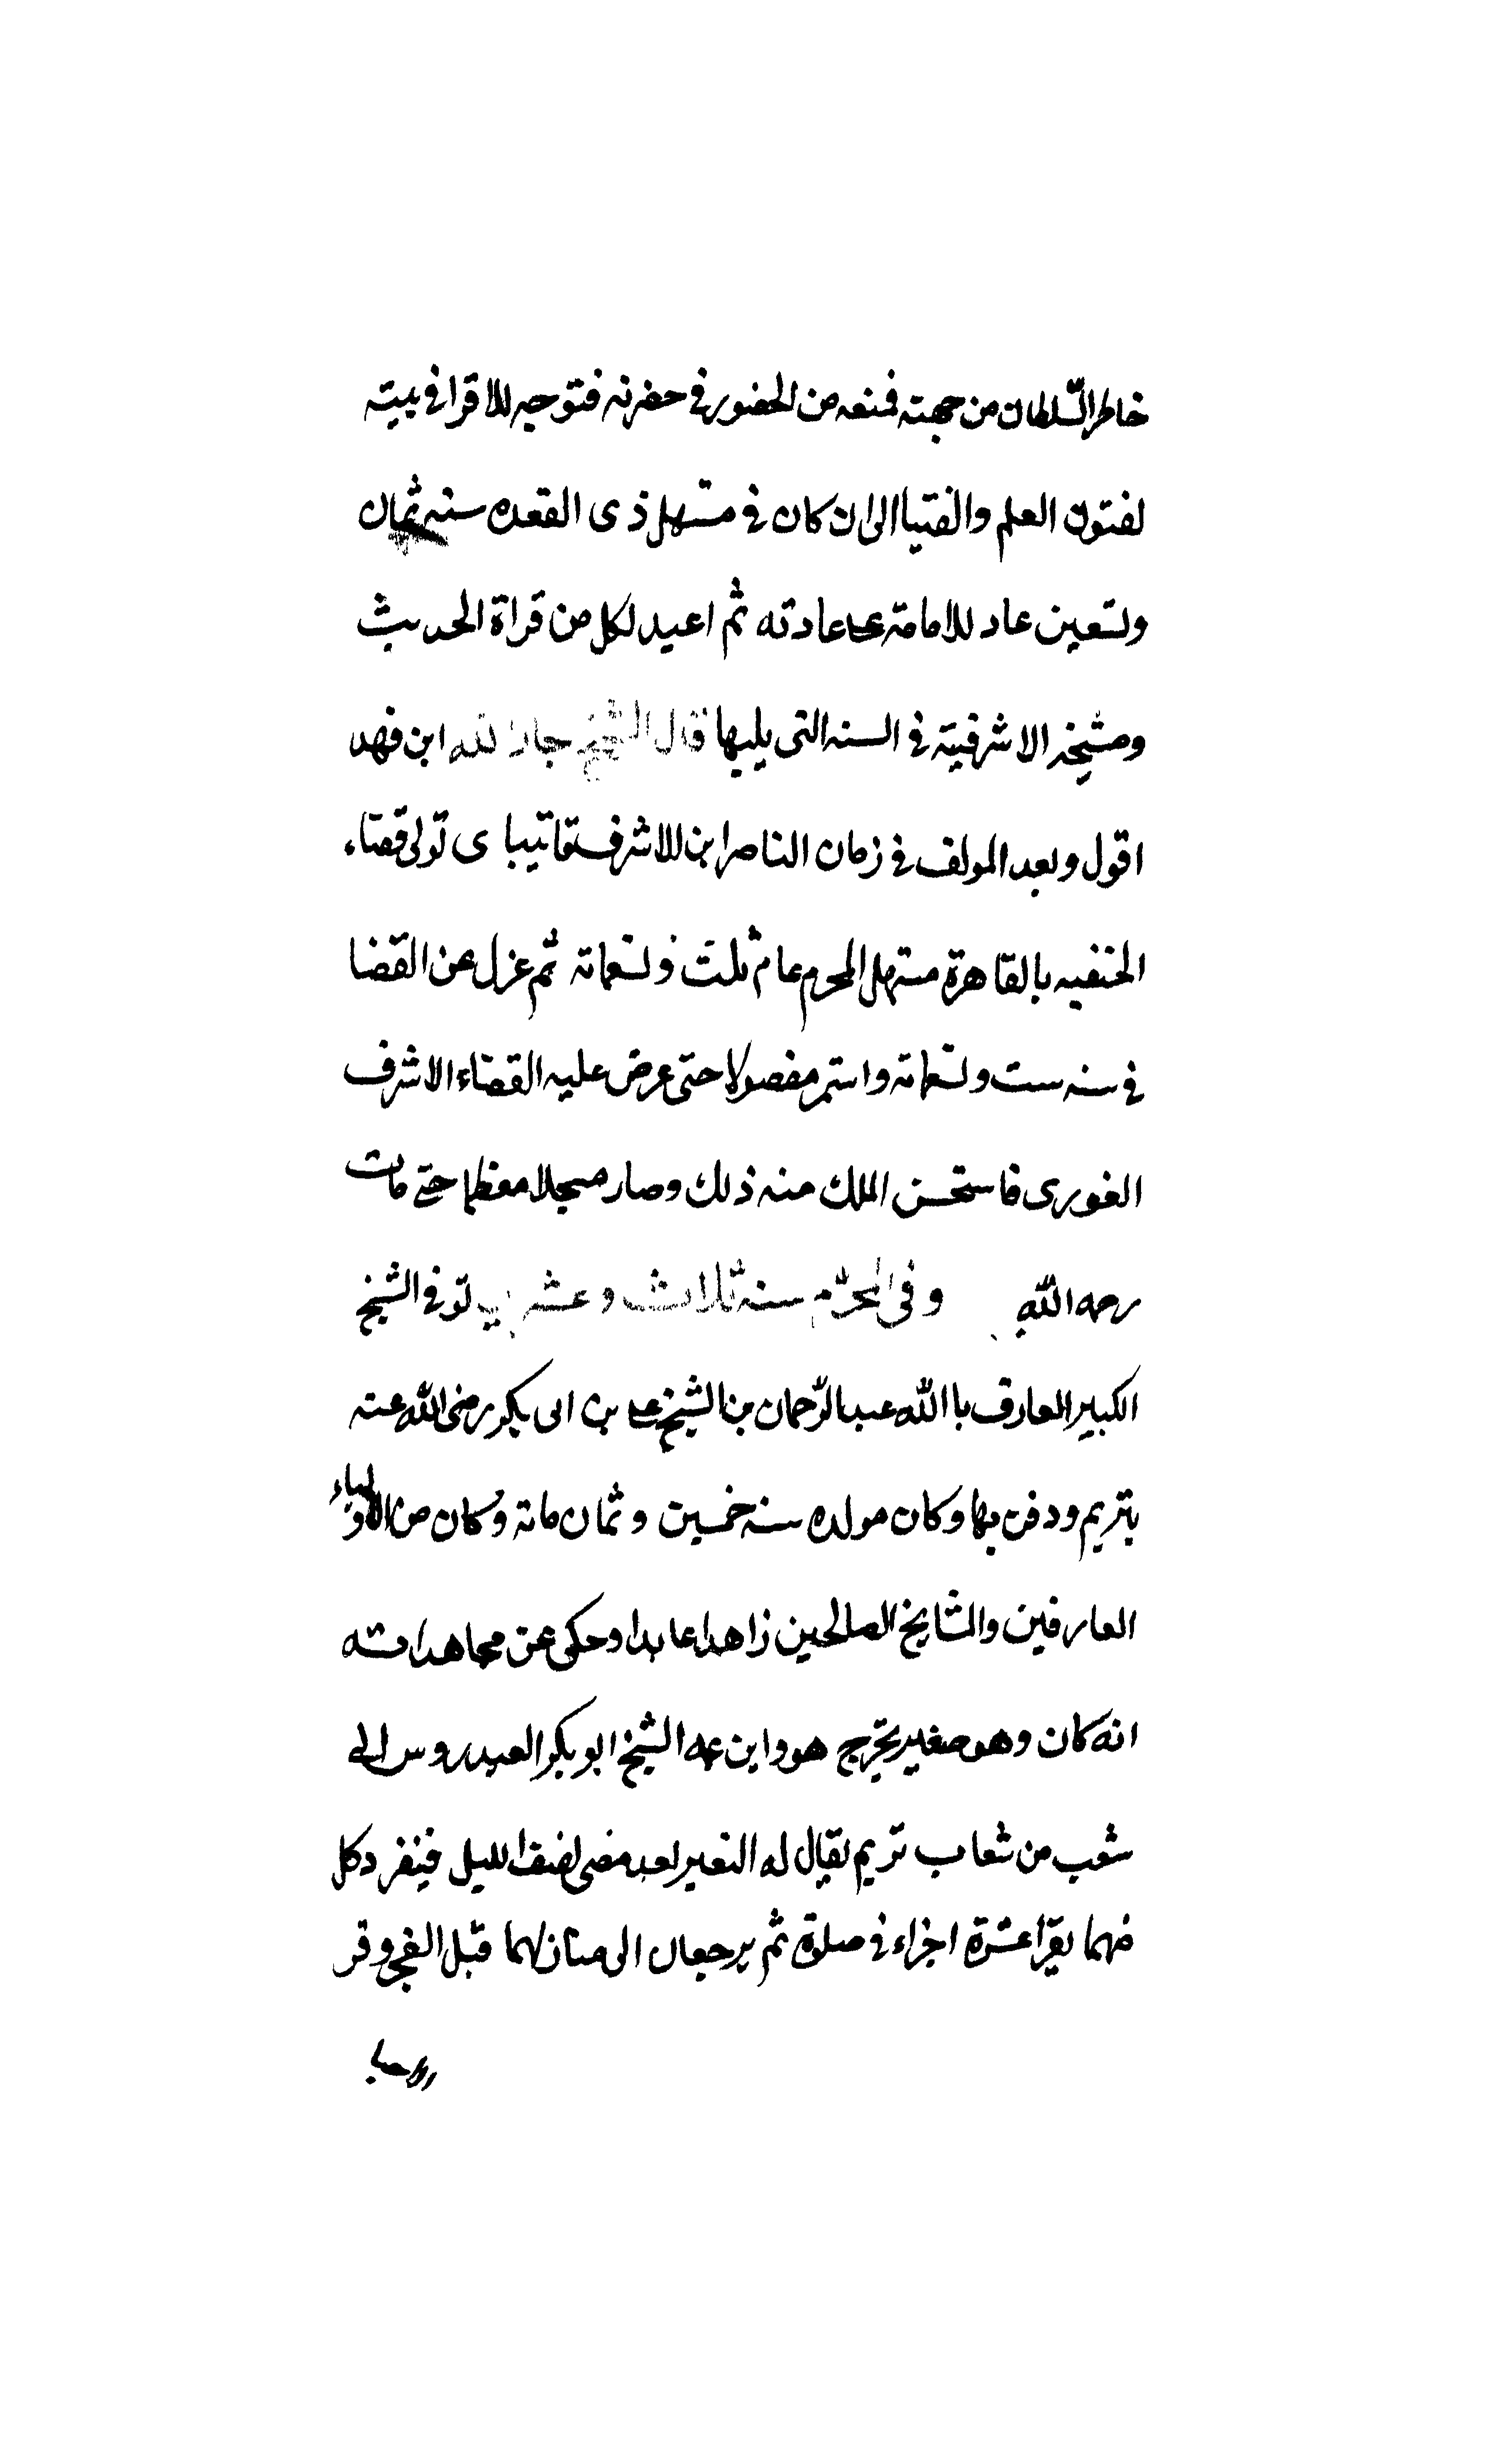 خاطر السّلطان من جهته فمنعه من الحضور في حضرته فتوجه للاقرا في بيته
لفنون العلم والفتيا الى ان كان في مستهل ذى القعده سنه ثمان
وتسعين عاد للامامة على عادته ثم اعيد لكل من قراة الحديث
ومشيخه الاشرفية في السنه التى يليها قال الشيخ جار الله ابن فهد
اقول وبعد المولف في زمان الناصر ابن للاشرف قاتيباى تولى قضاء
الحنفيه بالقاهرة مستهل المحرم عام ثلث وتسعماته ثم عزل عن القضا
في سنه ست وتسعماته واستمر مفصولا حتى عرض عليه القضاء الاشرف
الغورى فاستحسن الملك منه ذلك وصار مبجلا معظما حتى مات
رحمه الله وفي المحرّم سنه ثلاث وعشرين توفي الشيخ
الكبير العارف باالله عبد الرّحمان بن الشيخ على بن ابى بكر رضى الله عنه
بتريم ودفن بها وكان مولده سنه خمسين وثمان ماته وكان من الاولياء
العارفين والمشايخ الصالحين زاهدا عابدا وحكى عن مجاهداته
انه كان وهو صغير يخرج هو وابن عمه الشيخ ابو بكر العيدروس الى
شعب من شعاب تريم يقال له النعير بعد مضى نصف الليل فينفرد كل
منهما يقرا عشرة اجزاء في صلوة ثم يرجعان الى منازلهما قبل الفجر وقر